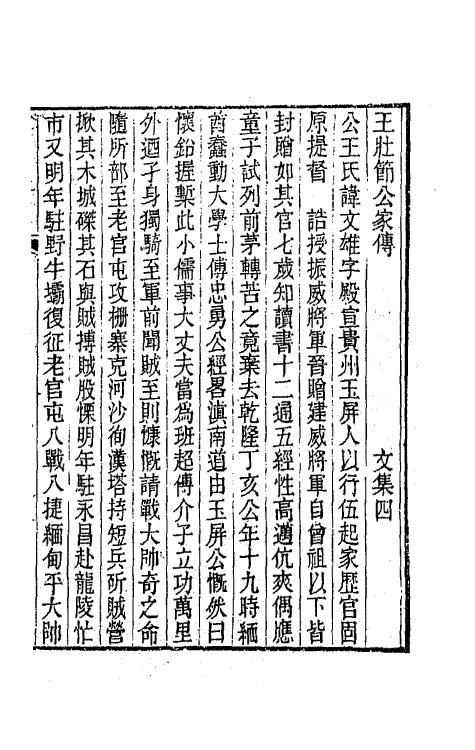 王壯節公家傳　文集四
公王氏諱文雄字殿宣貴州玉屏人以行伍起家歷官固
原提督　誥授振威將軍晉贈建威將軍自曾祖以下皆
封贈如其官七歲知讀書十二通五經性高邁伉爽偶應
童子試列前茅轉苦之竟棄去乾隆丁亥公年十九時緬
酋蠢動大學士傅忠勇公經畧滇南道由玉屏公慨然曰
懷鉛握槧此小儒事大丈夫當爲班超傅介子立功萬里
外迺孑身獨騎至軍前聞賊至則慷慨請戰大帥奇之命
隨所部至老官屯攻栅寨克河沙徇漢塔持短兵斫賊營
掀其木城磔其石與賊搏賊股慄明年駐永昌赴龍陵忙
市又明年駐野牛壩復征老官屯八戰八捷緬甸平大帥